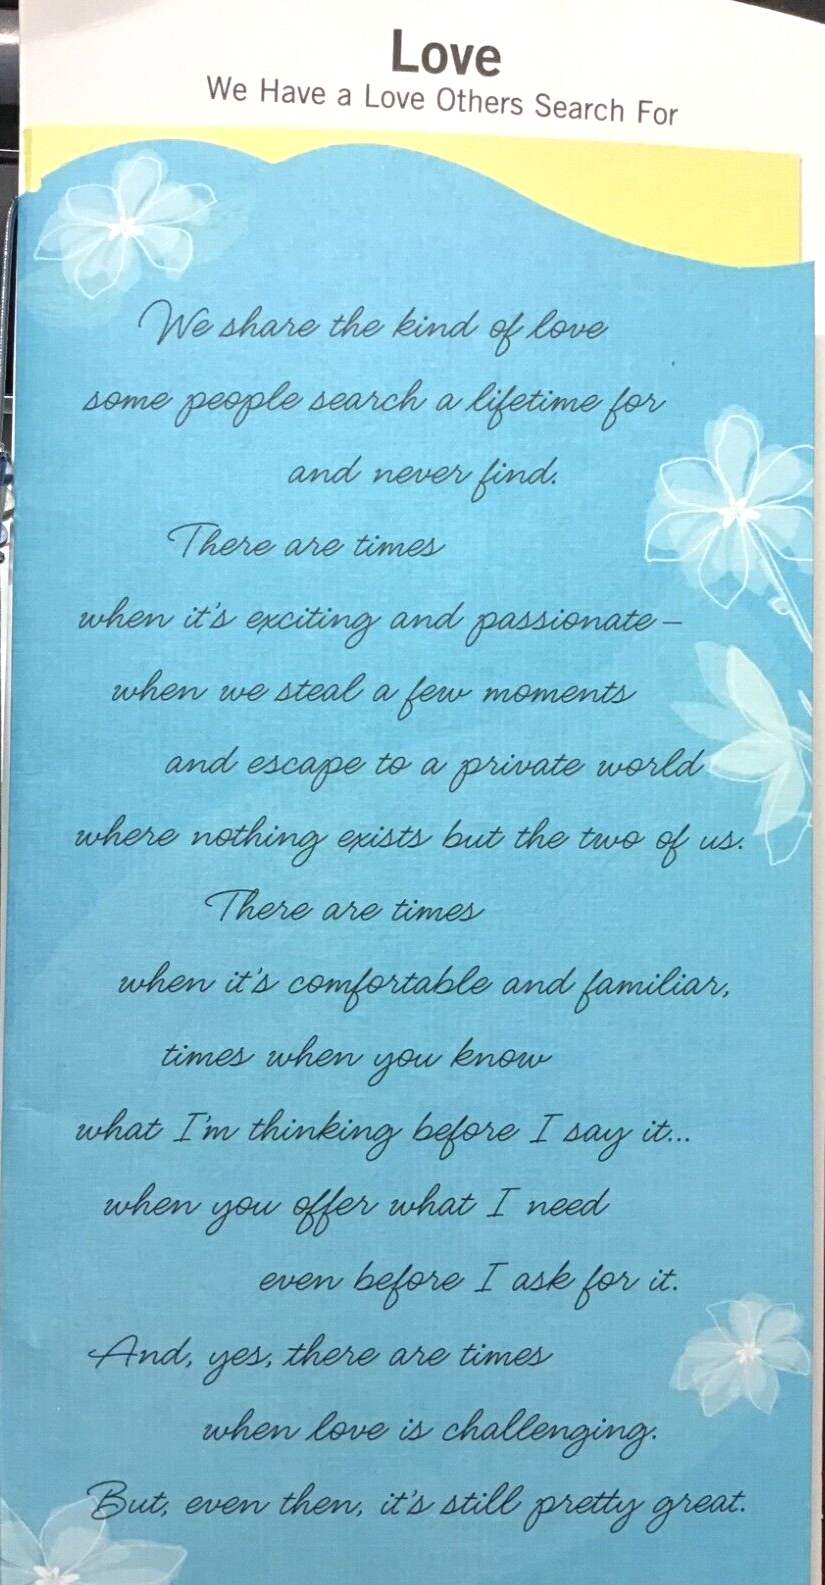 Love
We Have a Love Others Search For
We share the kind of love
some people search a lifetime for
and never find.
There are times
when it's exciting and passionate –
when we steal a few moments
and escape to a private world
where nothing exists but the two of us.
There are times
when it's comfortable and familiar,
times when you know
what I'm thinking before I say it...
when you offer what I need
even before I ask for it.
And, yes, there are times
when love is challenging.
But, even then, it's still pretty great.